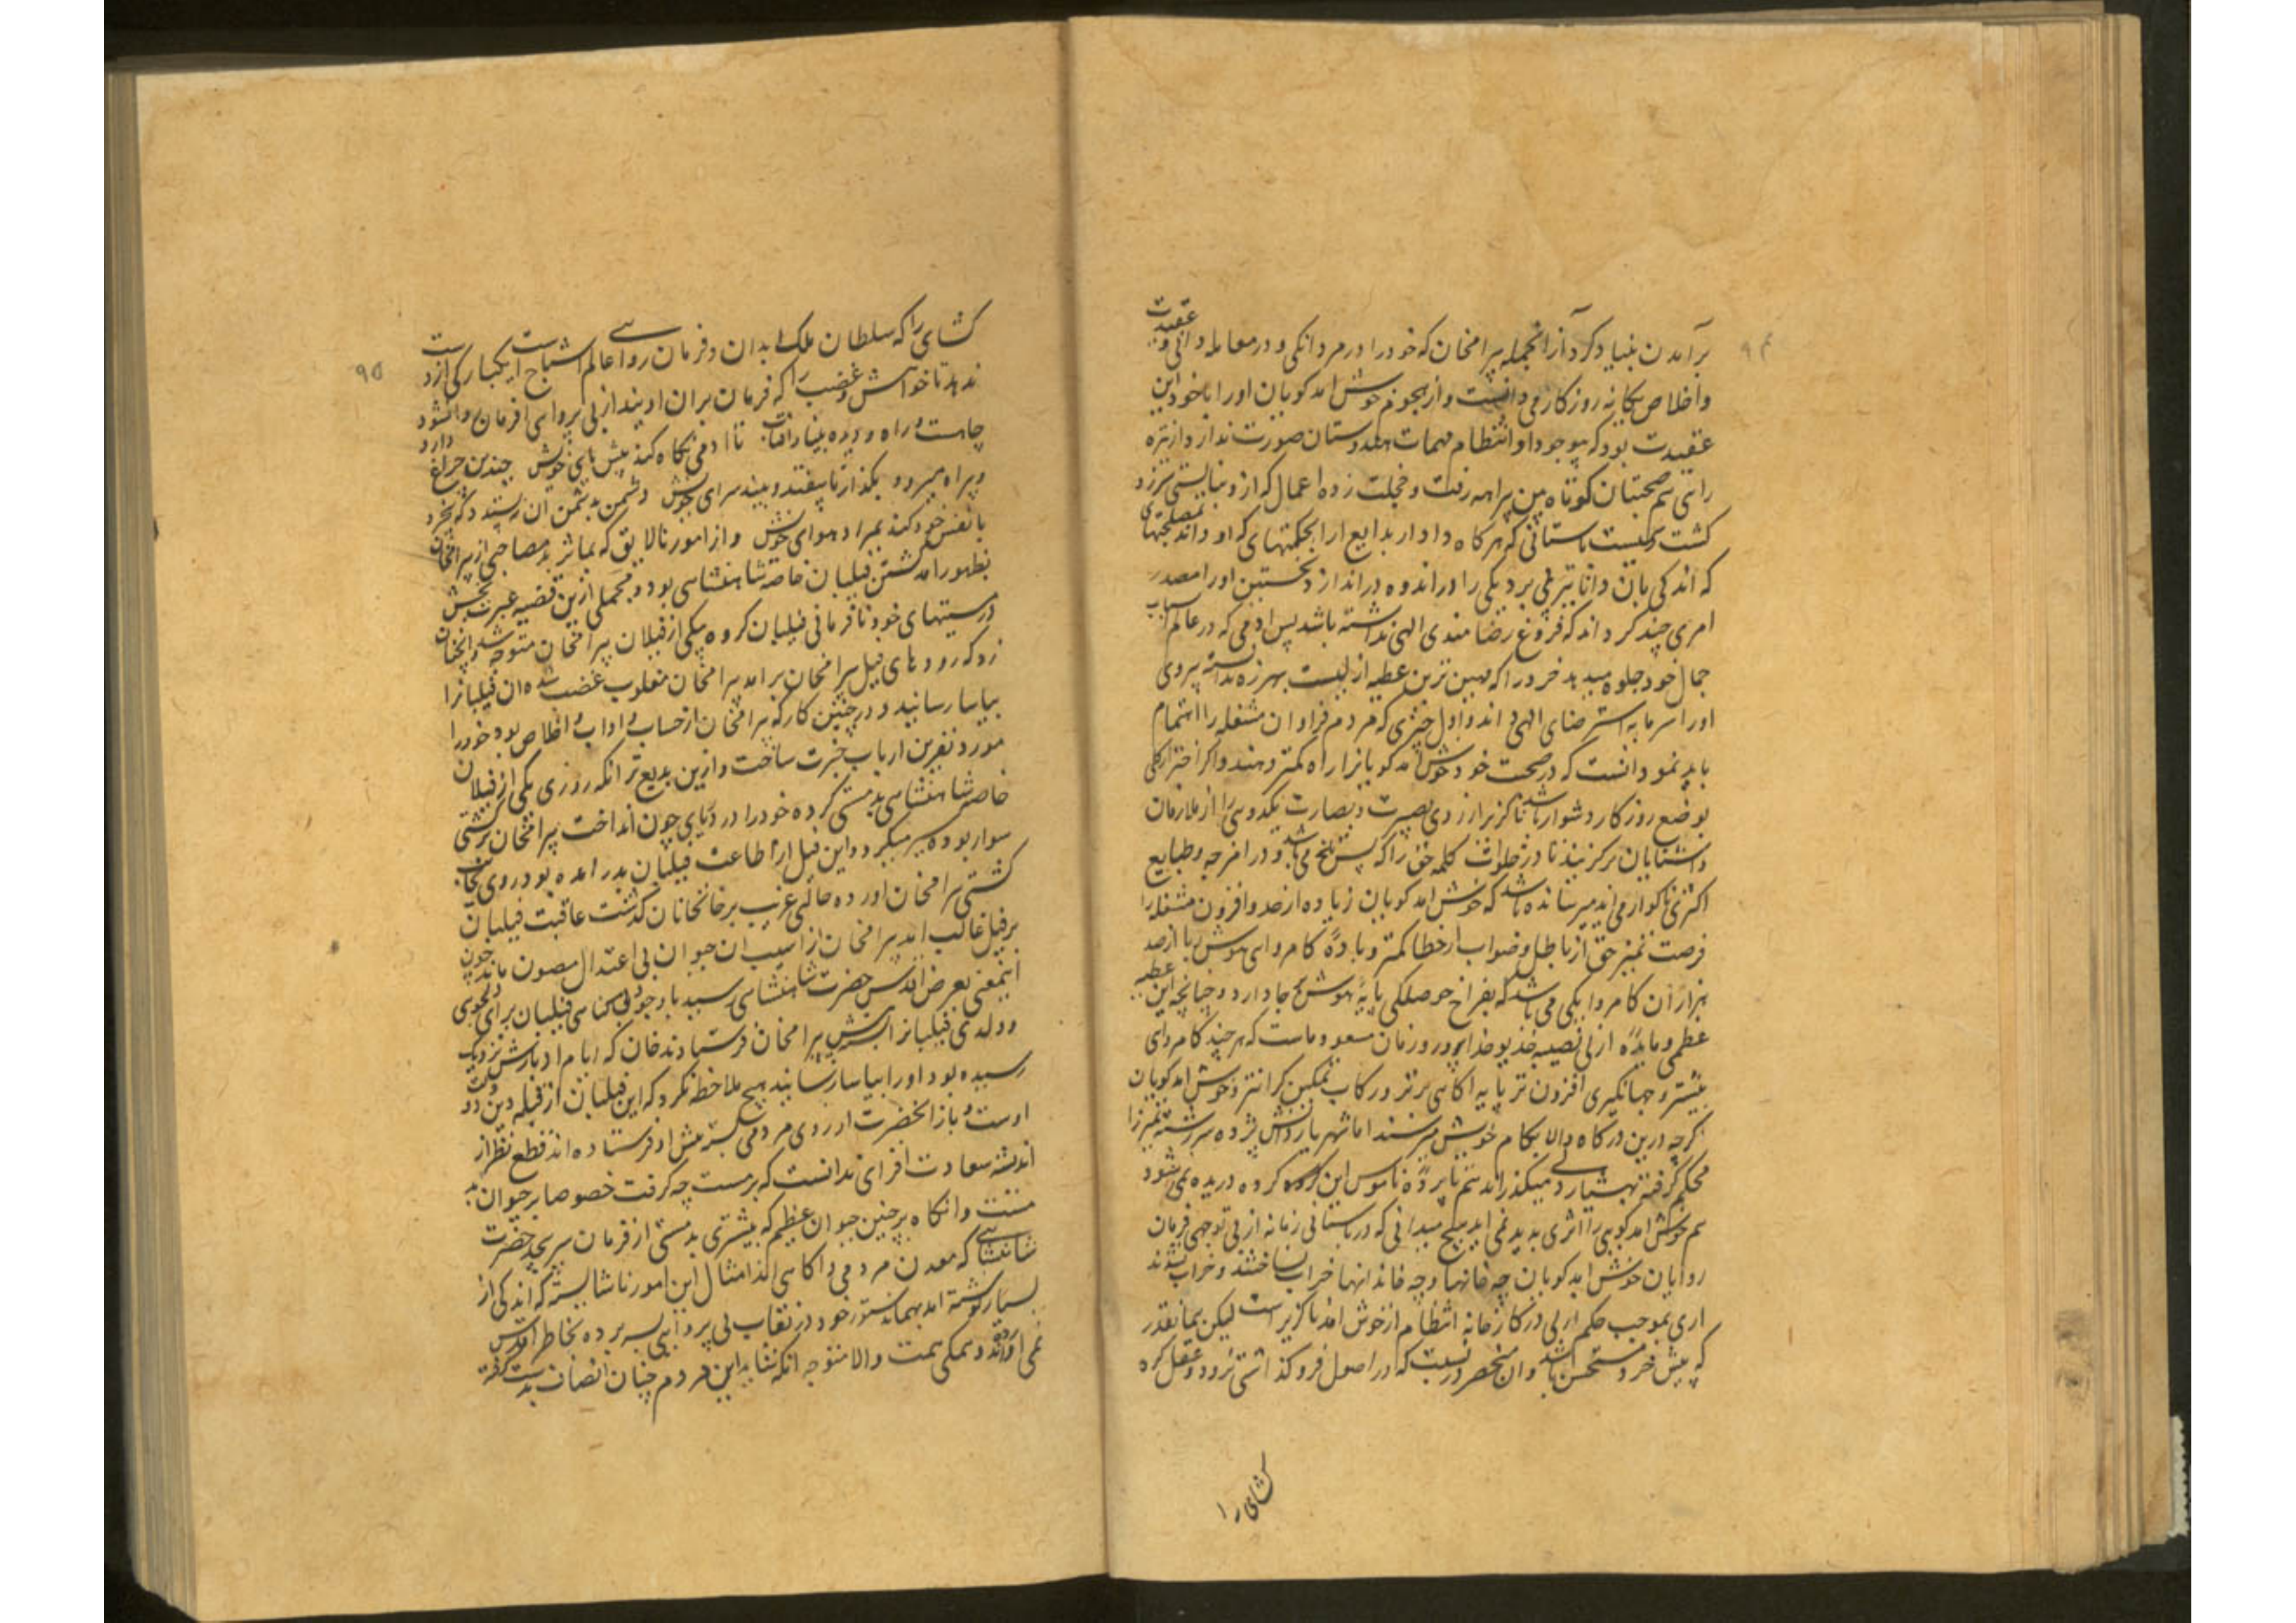 ۹۴
برآمدن بنیاد کرد آزانجمله بیرامخان که خود را در مردانکی و در معامله دانی و عقیدت
واخلاص یکانه روزکار می دانست و از هجوم خوش امد کویان او را با خود این
عقیدت بود که بی وجود او انتظام مهمات هندوستان صورت ندارد از تیره
رائی هم صحبتان کوتاه بین بیراهه رفت و خجلت زده اعمال که ازو نبایستی سرزد
کشت و نیست باستانی که هرکاه دادار بدایع ارا بحکمتهای که او داند و مصلحتهای
که اندکی بان دانا تیز پی برد یکی را در اندوه دراندازد نخستین او را مصدر
امری چند کرداند که فروغ رضامندی الهی نداشته باشد پس ادمی که در عالم اسباب
جمال خود جلوه میدهد خرد را که مهین ترین عطیه ازلیست بهرزه نداشته پیروی
او را سرمایه استرضای الهی داند و اول چیزی که مردم فراوان مشغله را اهتمام
باید نمود انست که در صحبت خود خوش امد کویانرا راه کمتر دهند و اکر احتراز کلی
بوضع روزکار دشوار باشد ناکزیر از روی بصیرت و بصارت یکدوسی را از ملازمان
واشنایان برکزینند تا در خلوات کلمه حق را که بس تلخ می باشد و در امزجه و طبایع
اکثری ناکوار می اید میرسانده باشد که خوش امد کویان زیاده از حد و افزون مشغله را
فرصت تمیز حق از باطل و صواب از خطا کمتر و باده کامروائی هوش ربا از صد
هزاران کامروا یکی می باشد که بفراخ حوصلکی پایه هوش بجا دارد و چنانچه این عطیه
عظمی و مایده ازلی نصیبه خدیو خداپرور زمان مسعود ماست که هر چند کامروائی
بیشتر و جهانکیری افزون تر پایه اکاهی برتر و رکاب تمکین کرانتر و خوش امد کویان
کرچه درین درکاه والا بکام خویش میرسند اما شهریار دانش پژوه سررشته تمیز را
محکم کرفته بهشیاردلی میکذراند هم پرده ناموس این کروه دریده نمی شود
هم خوش امد کویی را اثری پدید نمی اید هیچ میدانی که در باستانی زمانه از بی توجهی فرمان
روایان خوش امد کویان چه خانها و چه خاندانها خراب ساختند و خراب شدند
اری بموجب حکم ازلی در کارخانه انتظام از خوش امد ناکزیر است لیکن همانقدر
که پیش خرد مستحسن باشد وان منحصر درنیست که در اصول فروکذاشتی نرود و عقل کره
کشای را
۹۵
کشای را که سلطان ملک ابدان و فرمان روا عالم اشباح است یکبارکی از دست
ندهد تا خواهش و غضب را که فرمان بران اویند از بی پروائی فرمان روا نشود
چاهست و راه و دیده بینا و افتاب تا ادمی نکاه کند پیش پای خویش چندین چراغ دارد
و بیراه میرود بکذار تا بیفتد و بیند سزای خویش دشمن به دشمن ان نپسندد که بیخرد
با نفس خود کند بمراد هوای خویش و از امور نالایق که بماثر بدمصاحبی از بیرامخان
بظهور امد کشتن فیلبان خاصه شاهنشاهی بود و مجملی ازین قضیه عبرت بخش
در مستیهای خود نافرمانی فیلبان کرده بیکی از فیلان بیرامخان متوجه شد و چنان
زد که رودهای فیل برامد بیرامخان مغلوب غضب شده ان فیلبانرا
بیاسا رسانید و در چنین کار که بیرامخان از حساب و اداب و اخلاص بود خود را
مورد نفرین ارباب خبرت ساخت و ازین بدیع تر انکه روزی یکی از فیلان
خاصه شاهنشاهی بدمستی کرده خود را در دریای جون انداخت بیرامخان برکشتی
سوار بوده سیر میکرد و این فیل از اطاعت فیلبان بدر امده بود روی بجانب
کشتی بیرامخان اورده حالتی غریب بر خانخانان کذشت عاقبت فیلبان
بر فیل غالب امد بیرامخان از اسیب ان حیوان بی اعتدال مصون ماند چون
اینمعنی بعرض اقدس حضرت شاهنشاهی رسید با وجود بی کناهی فیلبان برای دلجوی
وولدهی فیلبانرا پیش بیرامخان فرستادند خان که ایام ادبارش نزدیک
رسیده بود او را بیاسا رسانید هیچ ملاحظه نکرد که این فیلبان از قبله دین و دولت
اوست و باز انحضرت از روی مردمی پیش او فرستاده اند قطع نظر از
اندیشه سعادت افزای ندانست که بر مست چه کرفت خصوصا بر حیوان بد
مست وانکاه بر چنین حیوان عظیم که بیشتری بدمستی از فرمان سرپیچد حضرت
شاهنشاهی که معدن مردمی و اکاهی اند امثال این امور ناشایسته که اندکی از
بسیار نوشته امد بهمان دستور خود در نقاب بی پروائی بسر برده بخاطر اقدس
نمی اوردند و همکی همت والا متوجه انکه شاید این مردم چنان انصاف بدست کرفته